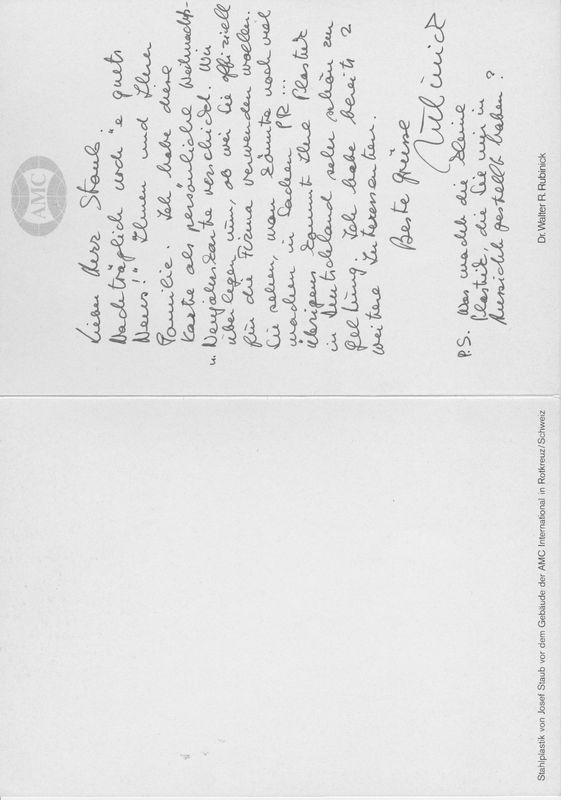 AMC
Lieber Herr Staub.
Nachträglich noch "e guets
Neus!" Ihnen und Ihrer
Familie. Ich habe diese
Karte als persönliche Weihnachts-
u. Neujahrskarte verschickt. Wir
überlegen nun, ob wir sie offiziell
für die Firma verwenden wollen.
Sie sehen, man könnte noch viel
machen in Sachen PR...
Übrigens kommt Ihre Plastik
in Deutschland sehr schön zur
Geltung. Ich habe bereits 2
weitere Interessenten.
Beste Grüsse
Rubinick
P.S. Was macht die kleine
Plastik, die Sie mir in
Aussicht gestellt haben?
Dr. Walter R. Rubinick
Stahlplastik von Josef Staub vor dem Gebäude der AMC International in Rotkreuz/Schweiz